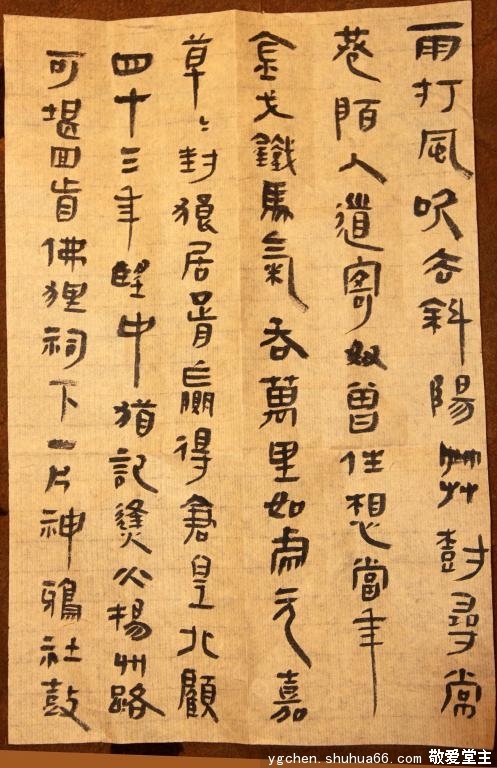 雨打風吹去斜陽艸樹尋常
巷陌人道寄奴曾住想當年
金戈鐵馬氣吞萬里如虎元嘉
草〻封狼居胥贏得倉皇北顧
四十三年望中猶記烽火揚州路
可堪回首佛狸祠下一片神鴉社鼓
ygchen.shuhua66.com 敬爱堂主